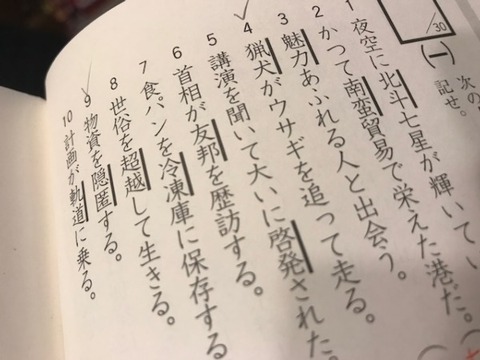 /30
(一)
次の
記せ。
1 夜空に北斗七星が輝いてい
2 かつて南蛮貿易で栄えた港だ。
3 魅力あふれる人と出会う。
4 猟犬がウサギを追って走る。
5 講演を聞いて大いに啓発された。
6 首相が友邦を歴訪する。
7 食パンを冷凍庫に保存する
8 世俗を超越して生きる。
9 物資を隠匿する。
10 計画が軌道に乗る。